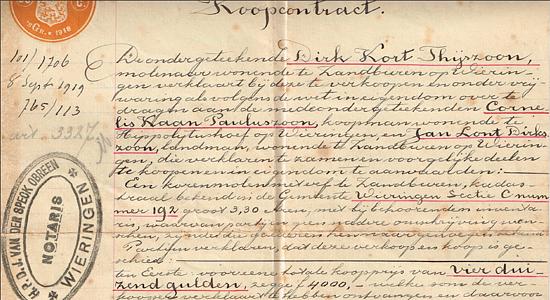 Koopcontract.
1918
101/1706
8 Sept 1919
765/113
art. 3327
De ondergeteekende Dirk Kort Thijszoon,
molenaar wonende te Landburen op Wierin-
gen verklaart bij deze te verkoopen en onder vrij
waring als volgens de wet in eigendom over te
dragen aan de medeondergeteekenden Corne-
lis Kaan Pauluszoon, koopman wonende te
Hippolytushoef op Wieringen, en Jan Lont Dirks-
zoon, landman, wonende te Landburen op Wierin-
gen, die verklaren te zamen en voor gelijke deelen
te koopen en in eigendom te aanvaarden:
Een korenmolen met erf te Landburen, kadas-
traal bekend in de Gemeente Wieringen Sectie C num
mer 192 groot 3,30 Aren, met bijbehoorenden inventa
ris, waarvan partijen geen nadere omschrijving wen-
Partijen verklaren, dat deze verkoop en koop is ge-
schied:
ten Eerste: voor eene totale koopprijs van vier dui
zend gulden, zegge f 4000,- welke som de ver-
kooper verklaart te hebben ontvangen en daarvoor
H.P.D.J. VAN DER SPEDK OBREEN
NOTARIS
WIERINGEN